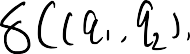 δ((q₁, q₂),